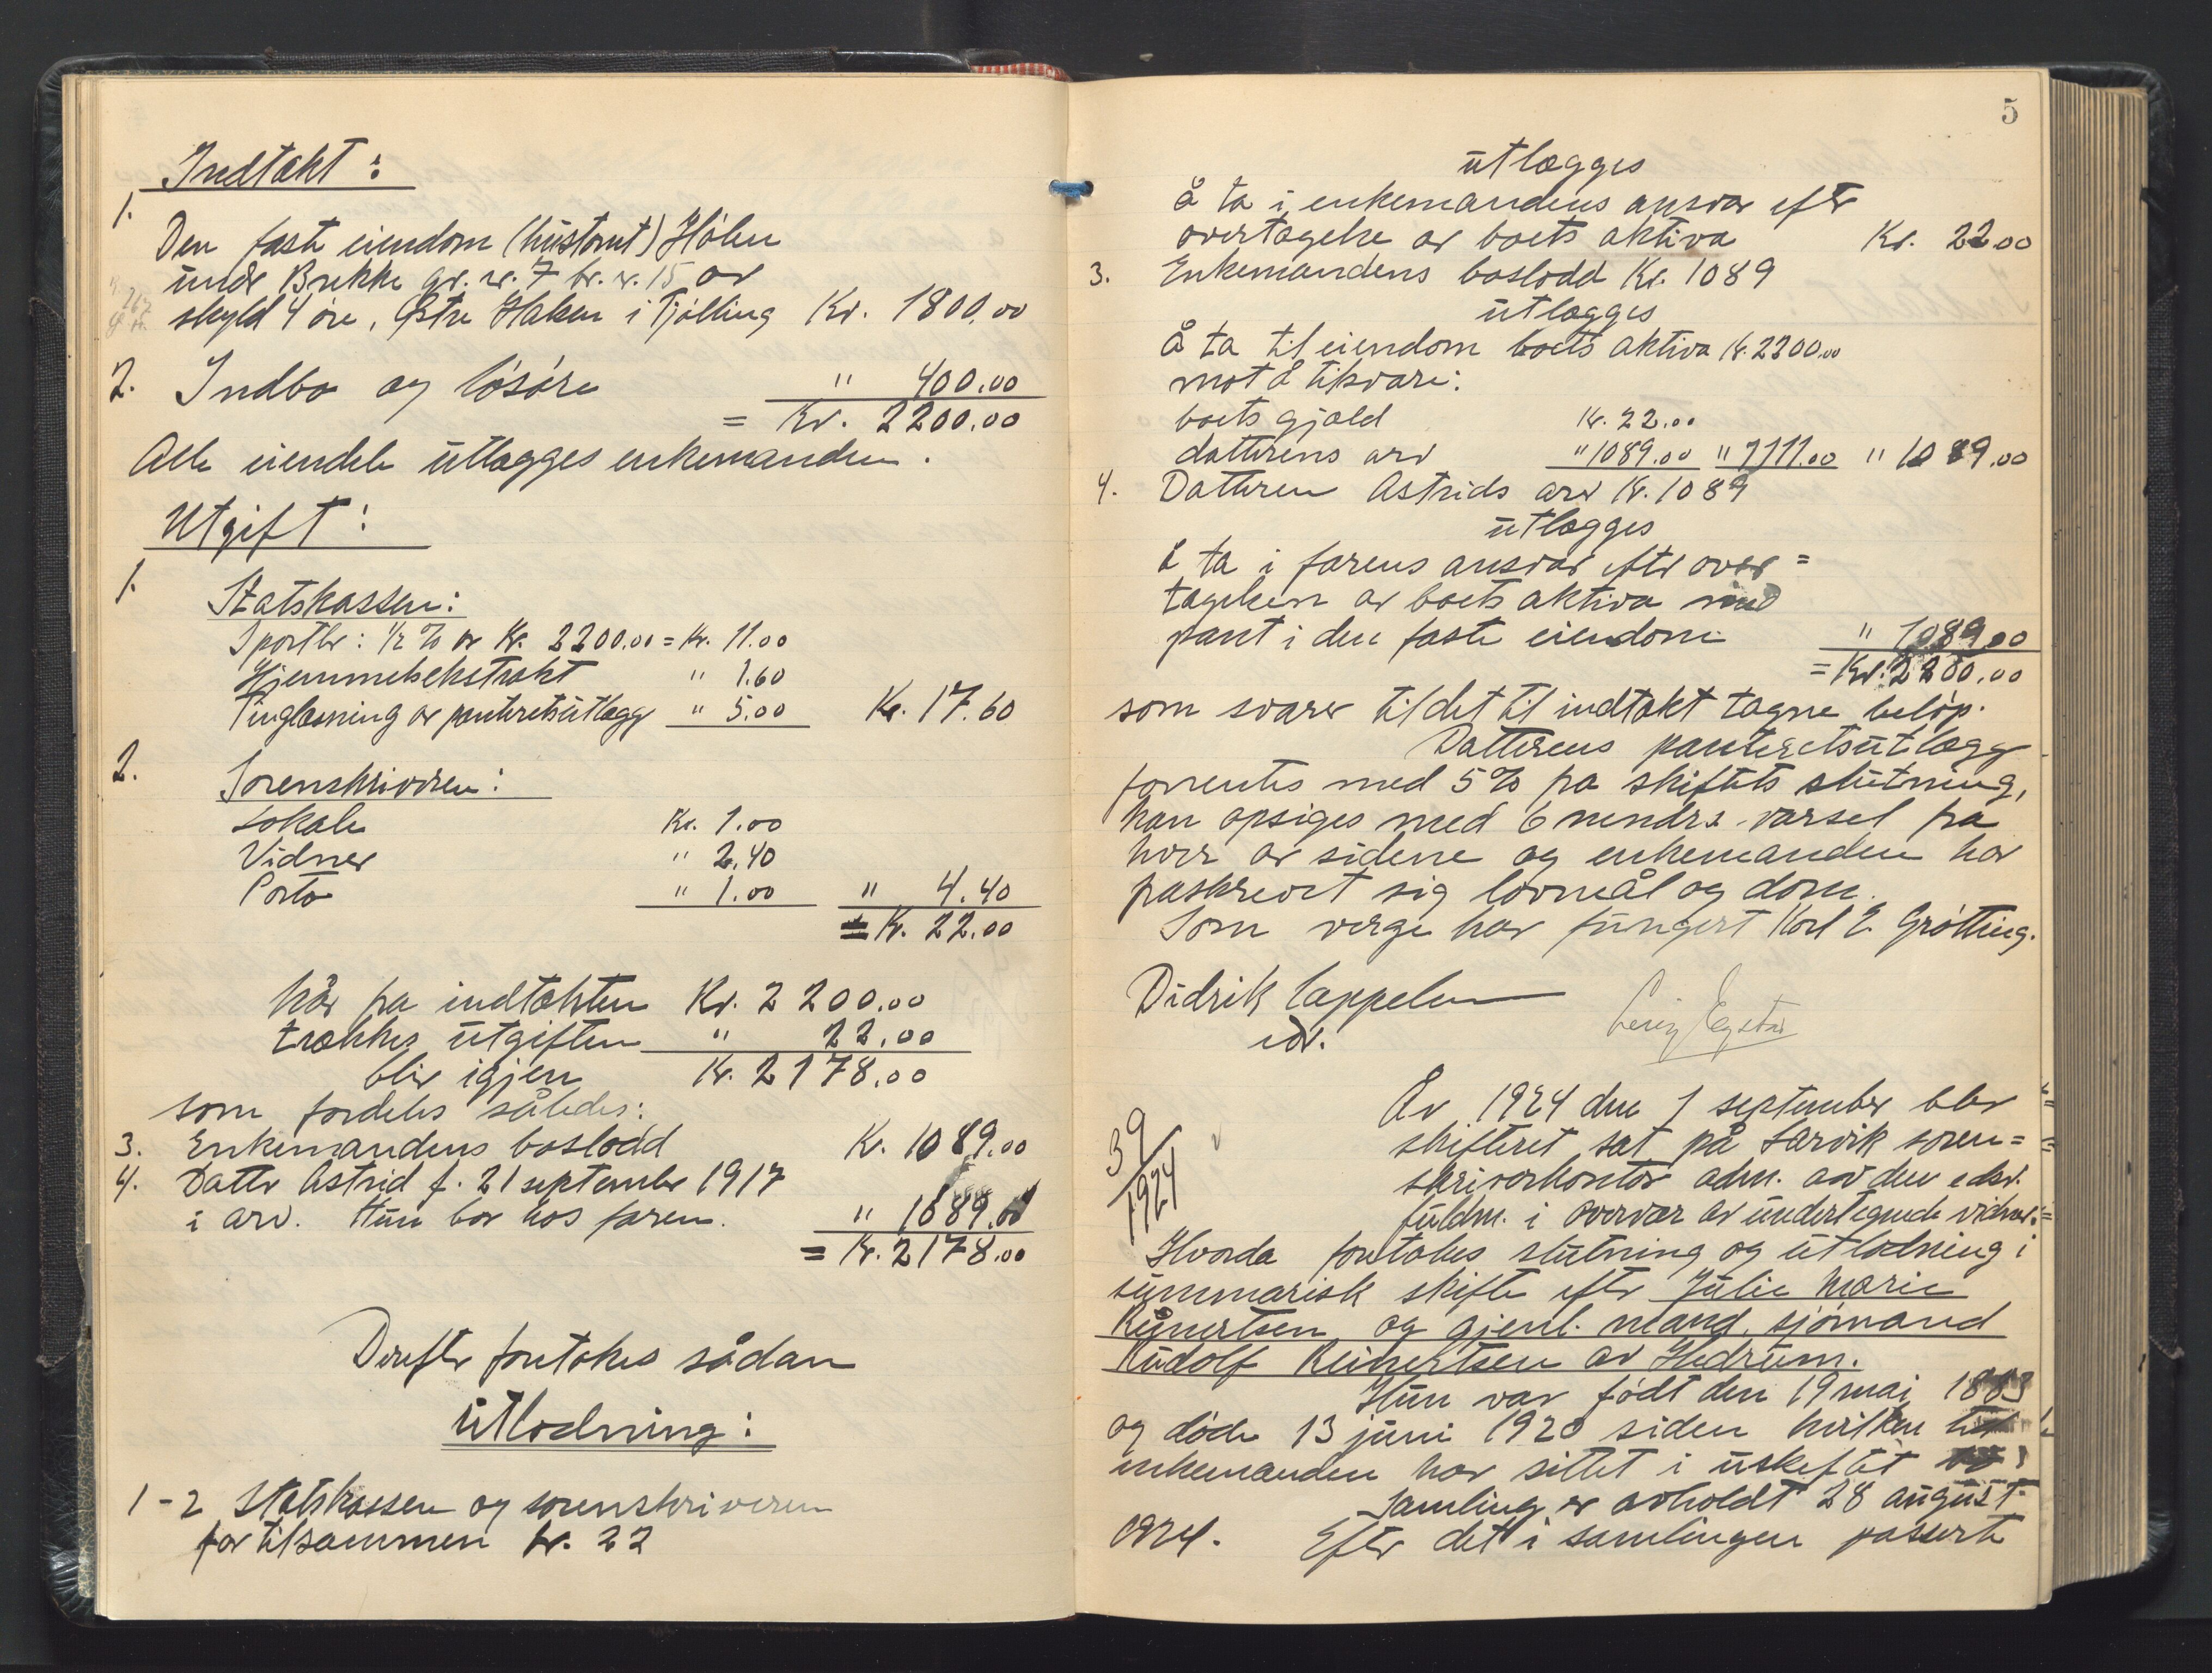 Indtækt:
1.
Den faste eiendom (hustomt) Hølen
under Brekke gr. nr. 7 br. nr. 15 av
skyld 4 øre, Østre Halsen i Tjølling Kr. 1800.00
2. Indbo og løsøre " 400.00
= Kr. 2200.00
Alle eiendele utlægges enkemanden.
Utgift:
1.
Statskassen:
Sportler: 1/2 % av Kr. 2200.00 = Kr. 11.00
Hjemmelsekstrakt " 1.60
Tinglæsning av panteretsutlægg " 5.00 Kr. 17.60
2.
Sorenskriveren:
Lokale Kr. 1.00
Vidner " 2.40
Porto " 1.00 " 4.40
= Kr. 22.00
Når fra indtækten Kr. 2200.00
trækkes utgiften " 22.00
blir igjen Kr. 2178.00
som fordeles således:
3. Enkemandens boslodd Kr. 1089.00
4. Datter Astrid f. 21 september 1917
i arv. Hun bor hos faren. " 1089.00
= Kr. 2178.00
Derefter foretokes sådan
Utlodning:
1-2 Statskassen og sorenskriveren
for tilsammen kr. 22
5
utlægges
å ta i enkemandens ansvar efter
overtagelse av boets aktiva Kr. 22.00
3. Enkemandens boslodd Kr. 1089
utlægges
å ta til eiendom boets aktiva Kr. 2200.00
mot å tilsvare:
boets gjæld Kr. 22.00
datterens arv " 1089.00 " 1111.00 " 1089.00
4. Datteren Astrids arv Kr. 1089
utlægges
å ta i farens ansvar efter over=
tagelsen av boets aktiva med
pant i den faste eiendom " 1089.00
= Kr. 2200.00
som svarer til det til indtækt tagne beløp.
Datterens panteretsutlægg
forrentes med 5 % fra skiftets slutning,
kan opsiges med 6 mndrs varsel fra
hver av siderne og enkemanden har
påskrevet sig lovmål og dom.
Som verge har fungert Karl E. Grøtting.
Didrik Cappelen
edr.
39/1924
År 1924 den 1 september blev
skifteret sat på Larvik soren=
skriverkontor adm. av den edsv.
fuldm. i overvær av undertegnede vidner.
Hvorda foretokes slutning og utlodning i
summarisk skifte efter Julie Marie
Reinertsen og gjenl. mand, sjømand
Rudolf Reinertsen av Hedrum.
Hun var født den 19 mai 1883
og døde 13 juni 1920 siden hvilken tid
enkemanden har sittet i uskiftet bo
Samling er avholdt 28 august
1924. Efter det i samlingen passerte